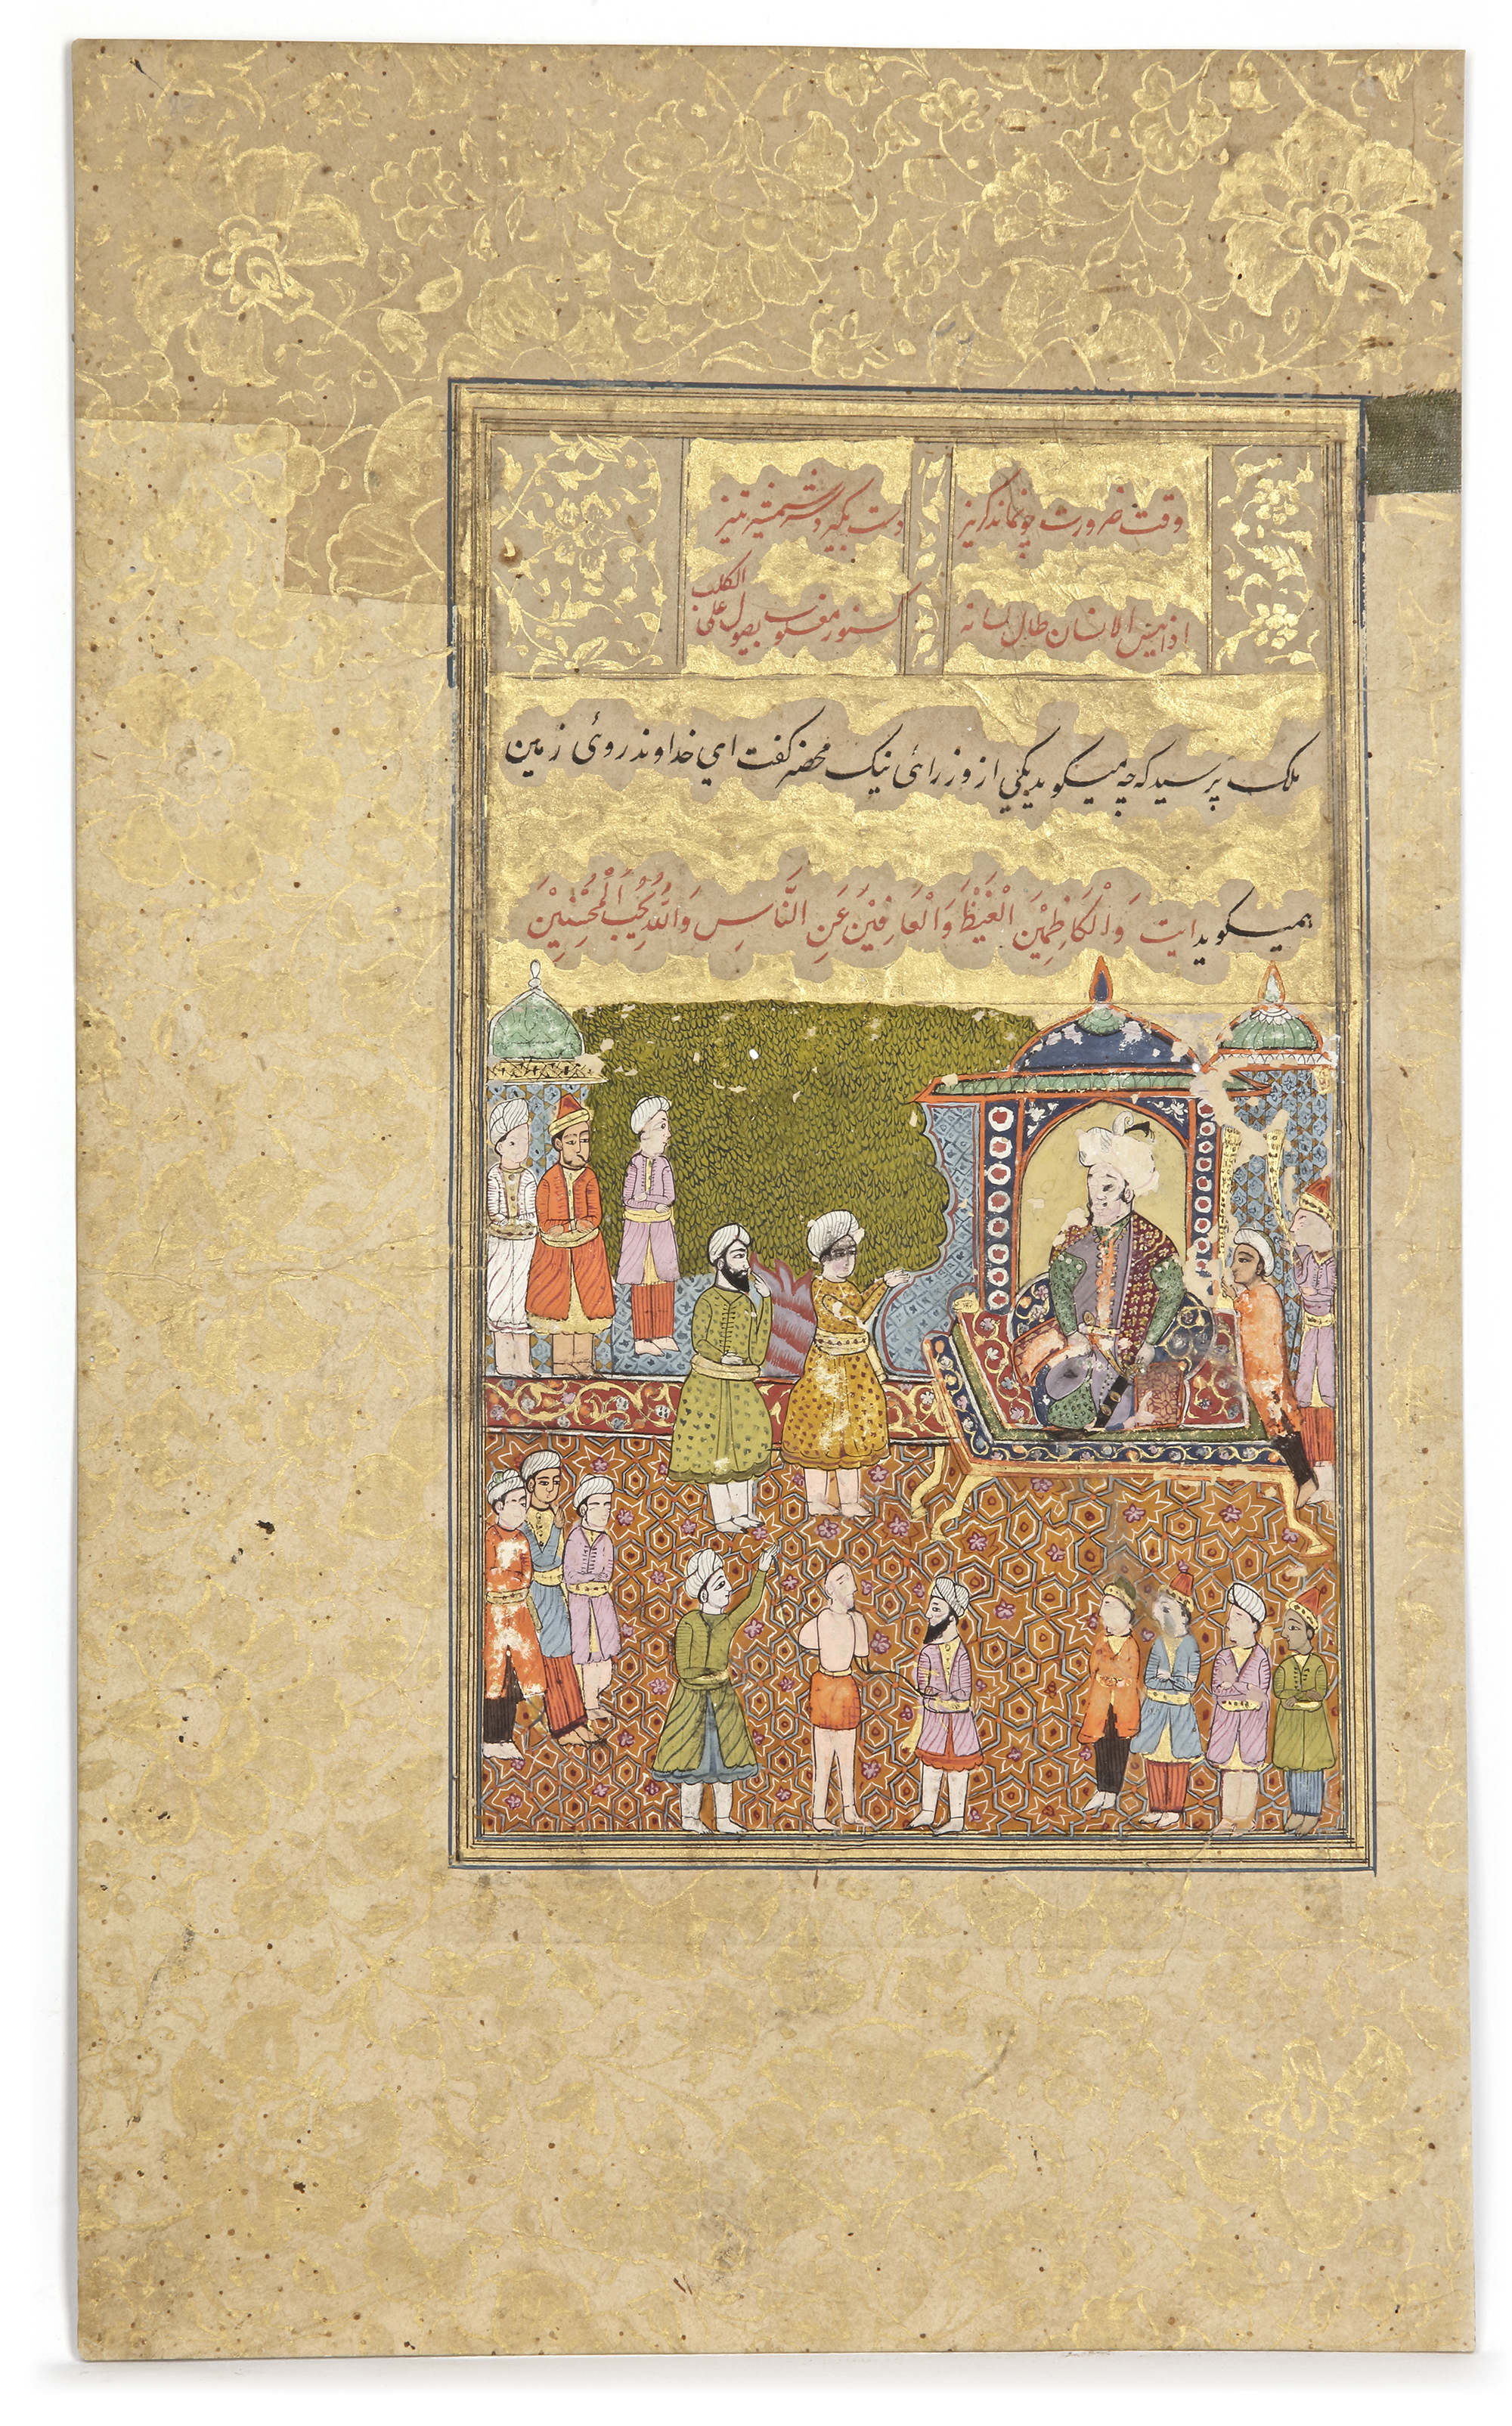 وقت ضرورت چو نماند گریز دست بگیرد سر شمشیر تیز
اذا یئس الانسان طال لسانه کسنور مغلوب یصول علی الکلب
ملک پرسید که چه میکوید یکی از وزرائی نیک محضر کفت ای خداوند روئی زمین
همیکوید ایت وَالْکَاظِمِیْنَ الْغَیْظَ وَالْعَافِیْنَ عَنِ النَّاسِ وَاللّٰهُ یُحِبُّ الْمُحْسِنِیْنَ